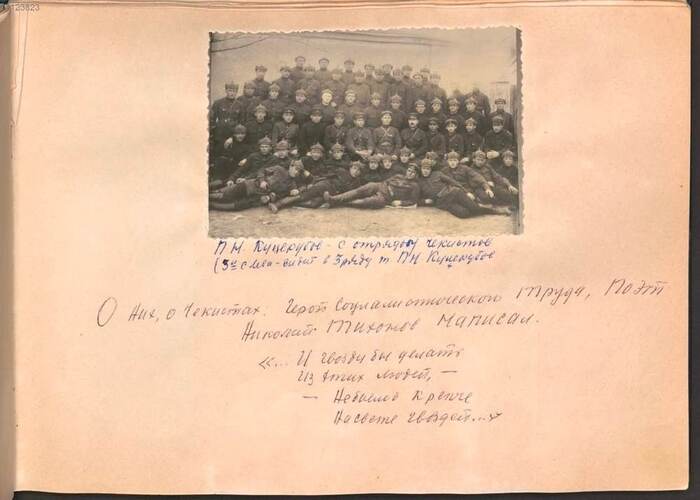 125823
П.Н. Куцерубов - с отрядом чекистов
(3й слева - сидит в 3 ряду т. П.Н. Куцерубов
О них, о чекистах. Герой Социалистического Труда, Поэт
Николай Тихонов написал.
«... И гвозди бы делать
Из этих людей, —
— Небыло б крепче
На свете гвоздей...»